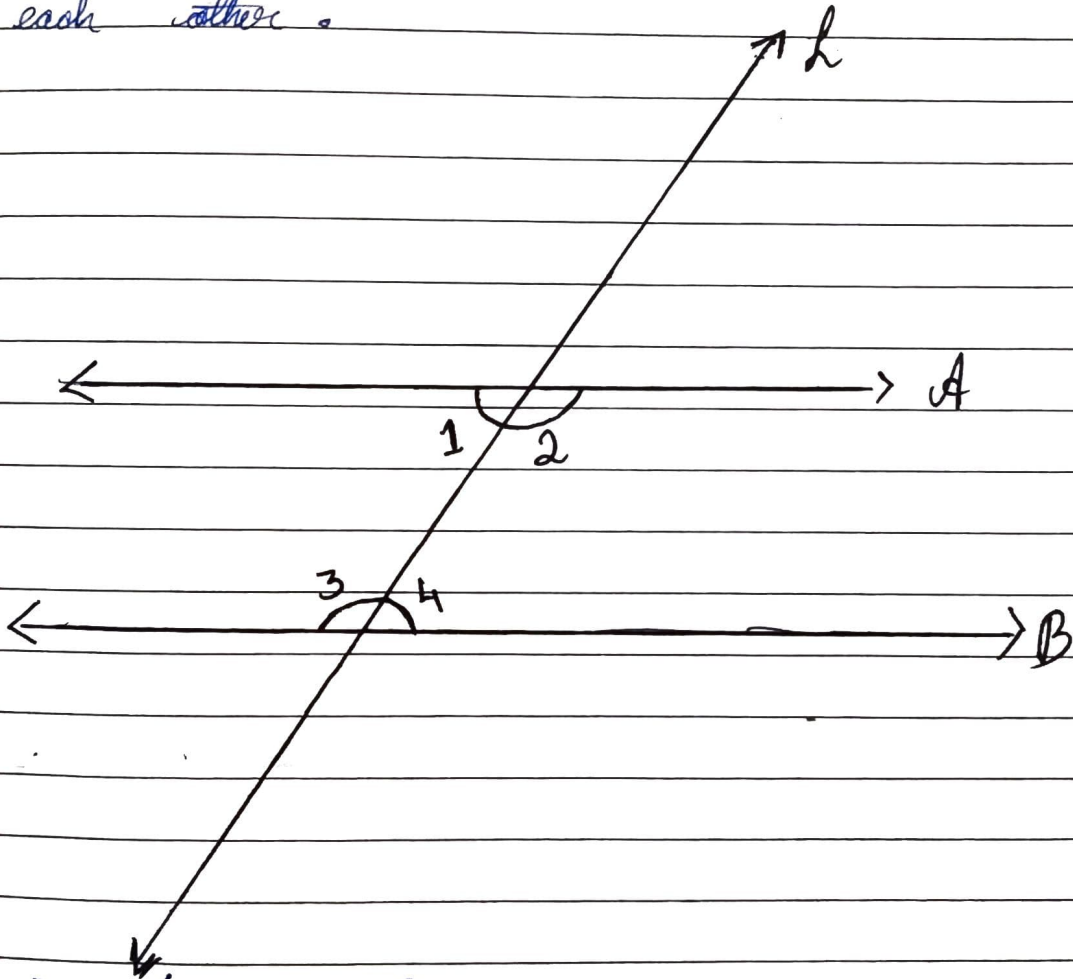 each other.
L
A
1 2
3 4
B